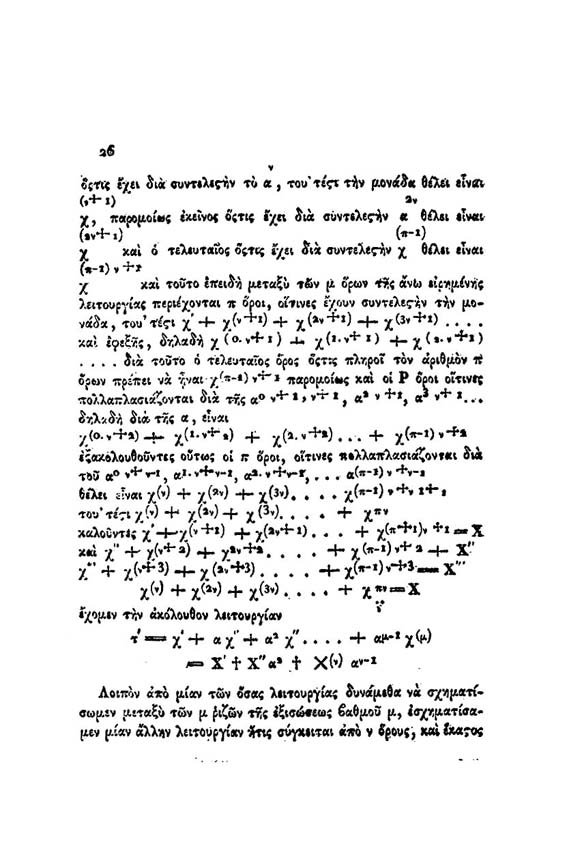 26
ν
ὅςτις ἔχει διὰ συντελεςὴν τὸ α, του' τέςι τὴν μονάδα θέλει εἶναι
(ν+1) 2ν
χ, παρομοίως ἐκεῖνος ὅςτις ἔχει διὰ συντελεςὴν α θέλει εἶναι
(2ν+1) (π-1)
χ καὶ ὁ τελευταῖος ὅςτις ἔχει διὰ συντελεςὴν χ θέλει εἶναι
(π-1) ν +1
χ καὶ τοῦτο ἐπειδὴ μεταξὺ τῶν μ ὅρων τῆς ἄνω εἰρημένης
λειτουργίας περιέχονται π ὅροι, οἵτινες ἔχουν συντελεςὴν τὴν μο-
νάδα, του' τέςι χ' + χ(ν+1) + χ(2ν+1) + χ(3ν+1) ....
καὶ ἐφεξῆς, δηλαδὴ χ (0.ν+1) + χ (1.ν+1) + χ (2.ν+1)
.... διὰ τοῦτο ὁ τελευταῖος ὅρος ὅςτις πληροῖ τὸν ἀριθμὸν π
ὅρων πρέπει νὰ ᾖναι χ(π-1) ν+1 παρομοίως καὶ οἱ Ρ ὅροι οἵτινες
πολλαπλασιάζονται διὰ τῆς α0 ν+1, ν+1, α2 ν+1, α3 ν+1...
δηλαδὴ διὰ τῆς α, εἶναι
χ(0.ν+2) + χ(1.ν+2) + χ(2.ν+2)... + χ(π-1) ν+2
ἐξακολουθοῦντες οὕτως οἱ π ὅροι, οἵτινες πολλαπλασιάζονται διὰ
τοῦ α0 ν+ν-1, α1.ν+ν-1, α2.ν+ν-1, ... α(π-1) ν+ν-1
θέλει εἶναι χ(ν) + χ(2ν) + χ(3ν).... χ(π-1) ν+ν 1+1
του' τέςι χ(ν) + χ(2ν) + χ(3ν).... + χπν
καλοῦντες χ'+χ(ν+1) +χ(2ν+1)... + χ(π+1)ν +1=Χ
καὶ χ'' + χ(ν+2) + χ2ν+2.... + χ(π-1) ν+2 + Χ''
χ''' + χ(ν+3) + χ(2ν+3).... +χ(π-1) ν+3=Χ'''
χ(ν) + χ(2ν) + χ(3ν).... + χ πν=Χ
ἔχομεν τὴν ἀκόλουθον λειτουργίαν
τ' = χ' + α χ'' + α2 χ''.... + αμ-1 χ(μ)
= Χ' † Χ'' α2 † Χ(ν) αν-1
Λοιπὸν ἀπὸ μίαν τῶν ὅσας λειτουργίας δυνάμεθα νὰ σχηματί-
σωμεν μεταξὺ τῶν μ ῥιζῶν τῆς ἐξισώσεως βαθμοῦ μ, ἐσχηματίσα-
μεν μίαν ἄλλην λειτουργίαν ἥτις σύγκειται ἀπὸ ν ὅρους, καὶ ἕκαςος